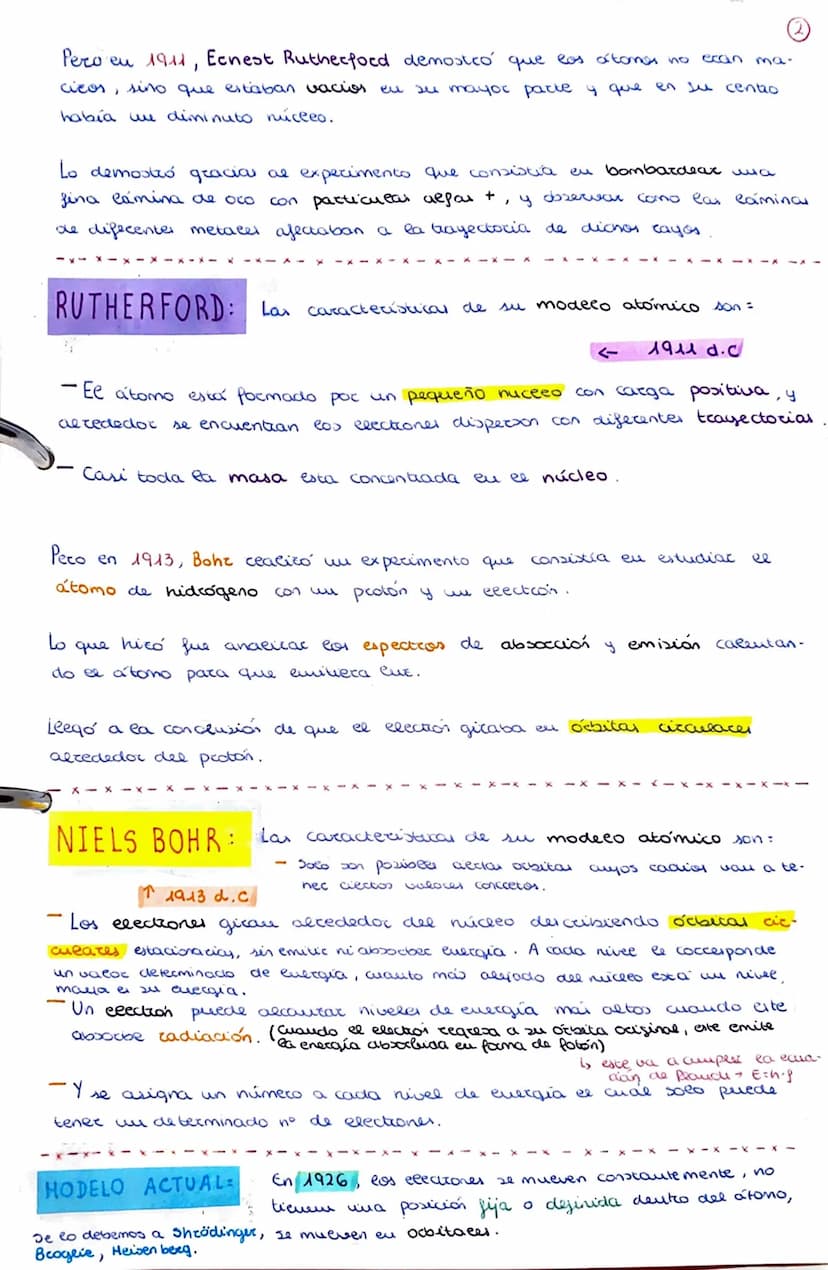 2
Pero en 1911, Ernest Rutherford demostró que los átomos no eran ma-
cizos, sino que estaban vacíos en su mayor parte y que en su centro
había un diminuto núcleo.
Lo demostró gracias al experimento que consistía en bombardear una
fina lámina de oro con partículas alfas +, y observar como las láminas
de diferentes metales afectaban a la trayectoria de dichos rayos.
RUTHERFORD: Las características de su modelo atómico son:
← 1911 d.C
- El átomo está formado por un pequeño nucleo con carga positiva, y
alrededor se encuentran los electrones dispersos con diferentes trayectorias.
- Casi toda la masa esta concentrada en el núcleo.
Pero en 1913, Bohr realizó un experimento que consistía en estudiar el
átomo de hidrógeno con un protón y un electrón.
Lo que hizó fue analizar los espectros de absorción y emisión calentan-
do el átomo para que emitiera luz.
Llegó a la conclusión de que el electrón giraba en órbitas circulares
alrededor del protón.
NIELS BOHR: Las características de su modelo atómico son:
- Solo son posibles ciertas orbitas cuyos radios van a te-
ner ciertos valores concretos.
↑ 1913 d.C
- Los electrones giran alrededor del núcleo describiendo órbitas cir-
culares estacionarias, sin emitir ni absorber energía. A cada nivel le corresponde
un valor determinado de energía, cuanto más alejado del núcleo está un nivel,
mayor es su energía.
- Un electrón puede alcanzar niveles de energía más altos cuando este
absorbe radiación. (Cuando el electrón regresa a su órbita original, este emite
la energía absorbida en forma de fotón)
↳ este va a cumplir la ecua-
ción de Planck → E=h·f
- Y se asigna un número a cada nivel de energía el cual solo puede
tener un determinado nº de electrones.
MODELO ACTUAL: En 1926, los electrones se mueven constantemente, no
tienen una posición fija o definida dentro del átomo,
se lo debemos a Shrödinger, se mueven en orbitales.
Broglie, Heisenberg.